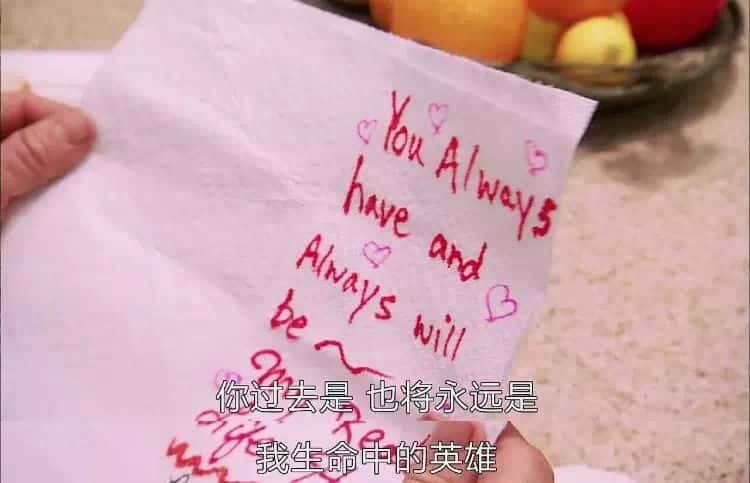 You Always
have and
Always will
be
my Real
life
你过去是 也将永远是
我生命中的英雄